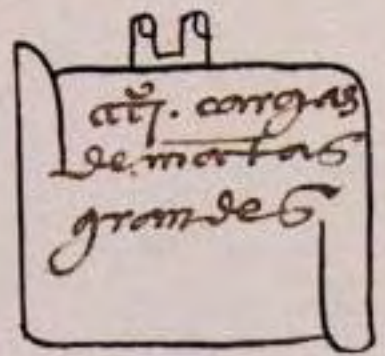 cargas
de mantas
grandes